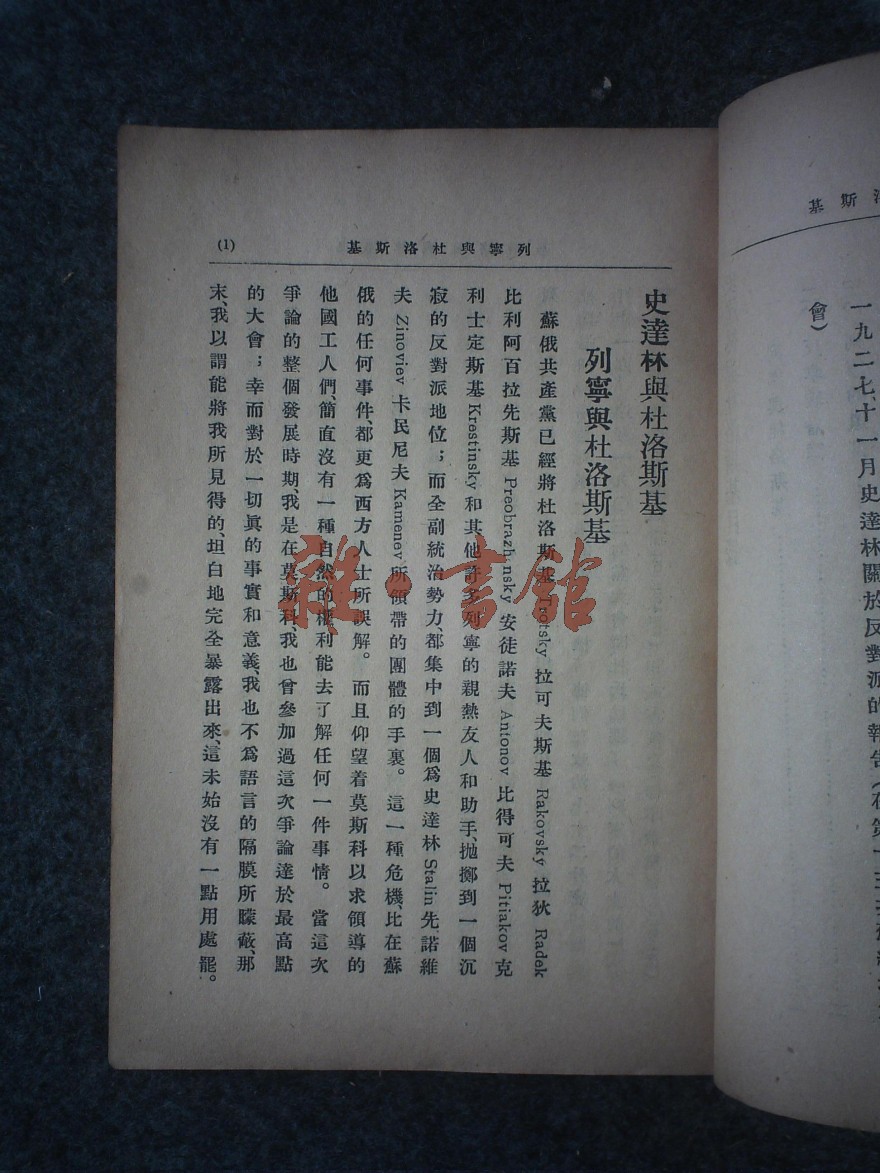 基斯洛
一九二七、十一月史達林關於反對派的報告(在第十五
會)
列寧與杜洛斯基
(1)
史達林與杜洛斯基
列寧與杜洛斯基
蘇俄共產黨已經將杜洛斯基Trotsky 拉可夫斯基 Rakovsky 拉狄 Radek
比利阿百拉先斯基 Preobrazhnsky 安徒諾夫 Antonov 比得可夫 Pitiakov 克
利士定斯基 Krestinsky 和其他許多列寧的親熱友人和助手、拋擲到一個沉
寂的反對派地位；而全副統治勢力、都集中到一個爲史達林 Stalin 先諾維
夫 Zinoviev 卡民尼夫 Kamenev 所領帶的團體的手裏。這一種危機、比在蘇
俄的任何事件、都更爲西方人士所誤解。而且仰望着莫斯科以求領導的
他國工人們、簡直沒有一種自然的權利能去了解任何一件事情。當這次
爭論的整個發展時期、我是在莫斯科我也曾參加過這次爭論達於最高點
的大會；幸而對於一切眞的事實和意義、我也不爲語言的隔膜所矇蔽、那
末、我以謂能將我所見得的、坦白地完全暴露出來、這未始沒有一點用處罷。
雜·書館